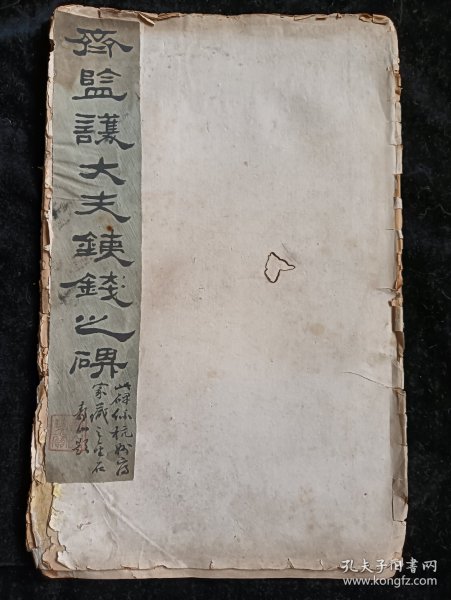 齊監護大夫銕錢之碑
此碑係杭州府
家藏之生石
題
孔夫子旧书网
www.kongfz.com